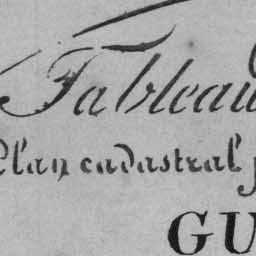 Tableau
Plan cadastral p
GU